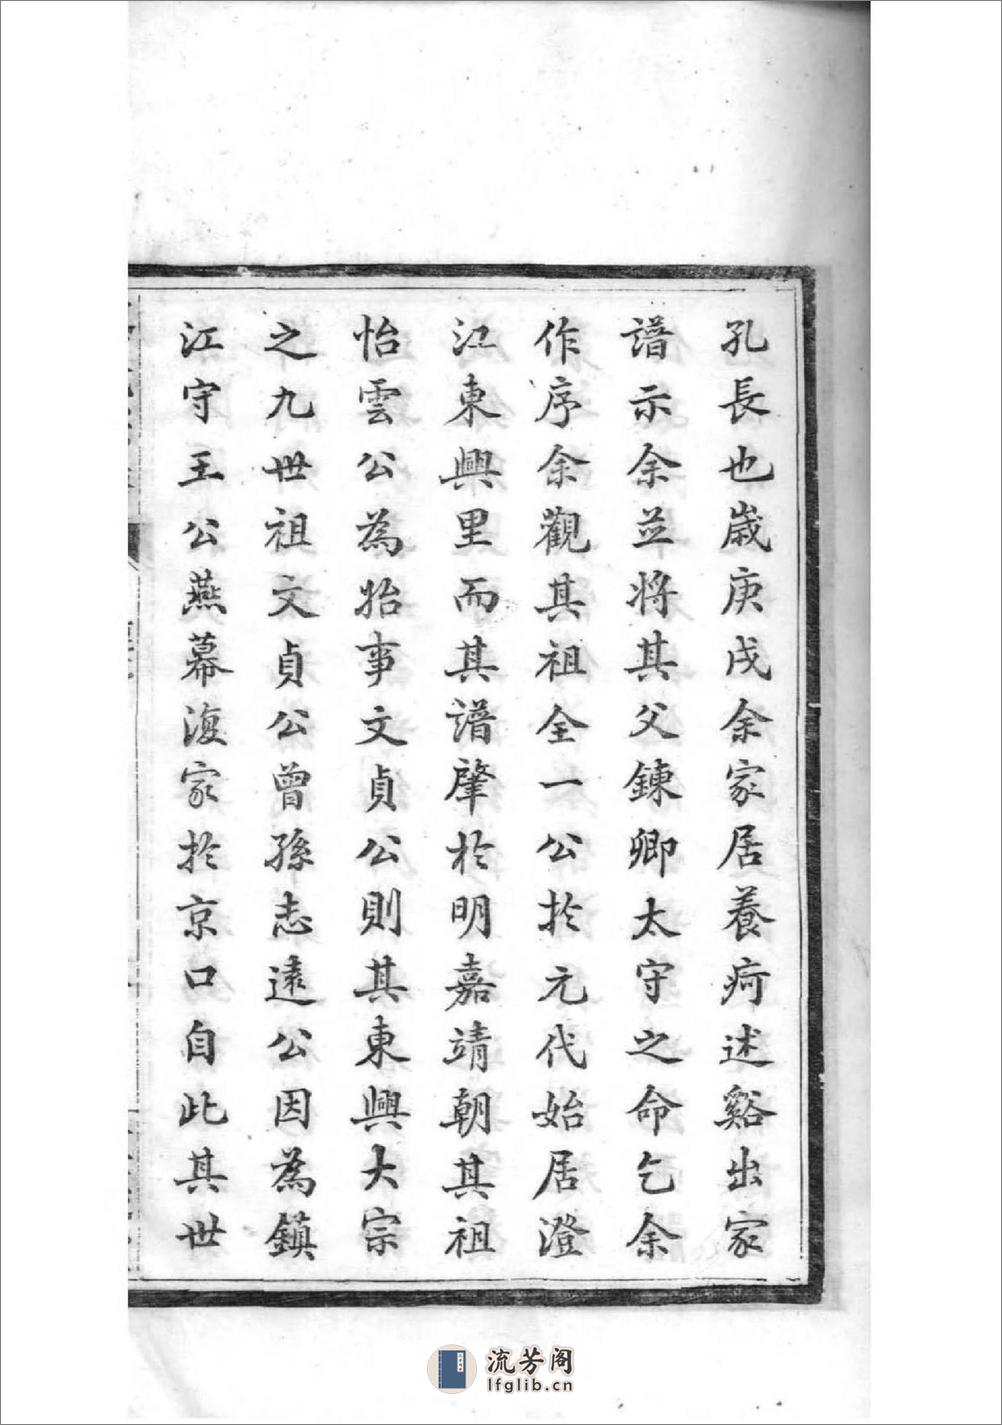 孔長也歲庚戌余家居養疴述谿出家
譜示余並將其父鍊卿太守之命乞余
作序余觀其祖全一公於元代始居澄
江東興里而其譜肇於明嘉靖朝其祖
怡雲公為始事文貞公則其東興大宗
之九世祖文貞公曾孫志遠公因為鎮
江守王公燕幕復家於京口自此其世
流芳阁
lfglib.cn